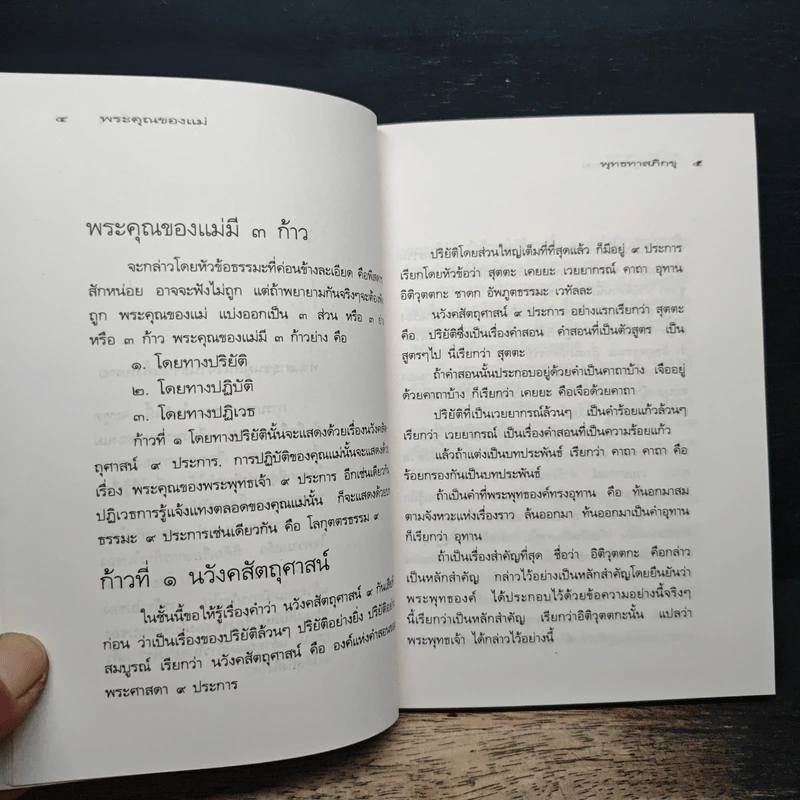 ๔ พระคุณของแม่
พระคุณของแม่มี ๓ ก้าว
จะกล่าวโดยหัวข้อธรรมะที่ค่อนข้างละเอียด คือพิสดาร
สักหน่อย อาจจะฟังไม่ถูก แต่ถ้าพยายามกันจริงๆจะต้องฟัง
ถูก พระคุณของแม่ แบ่งออกเป็น ๓ ส่วน หรือ ๓
หรือ ๓ ก้าว พระคุณของแม่มี ๓ ก้าวย่าง คือ
๑. โดยทางปริยัติ
๒. โดยทางปฏิบัติ
๓. โดยทางปฏิเวธ
ก้าวที่ ๑ โดยทางปริยัตินั้นจะแสดงด้วยเรื่องนวังคสัต
ถุศาสน์ ๙ ประการ, การปฏิบัติของคุณแม่นั้นจะแสดงด้วย
เรื่อง พระคุณของพระพุทธเจ้า ๙ ประการ อีกเช่นเดียวกัน
ปฏิเวธการรู้แจ้งแทงตลอดของคุณแม่นั้น ก็จะแสดงด้วย
ธรรมะ ๙ ประการเช่นเดียวกัน คือ โลกุตตรธรรม ๙
ก้าวที่ ๑ นวังคสัตถุศาสน์
ในชั้นนี้ขอให้รู้เรื่องคำว่า นวังคสัตถุศาสน์ ๙ กันเสีย
ก่อน ว่าเป็นเรื่องของปริยัติล้วนๆ ปริยัติอย่างยิ่ง ปริยัติอย่าง
สมบูรณ์ เรียกว่า นวังคสัตถุศาสน์ คือ องค์แห่งคำสอนของ
พระศาสดา ๙ ประการ
พุทธทาสภิกขุ ๕
ปริยัติโดยส่วนใหญ่เต็มที่ที่สุดแล้ว ก็มีอยู่ ๙ ประการ
เรียกโดยหัวข้อว่า สุตตะ เคยยะ เวยยากรณ์ คาถา อุทาน
อิติวุตตกะ ชาดก อัพภูตธรรมะ เวทัลละ
นวังคสัตถุศาสน์ ๙ ประการ อย่างแรกเรียกว่า สุตตะ
คือ ปริยัติซึ่งเป็นเรื่องคำสอน คำสอนที่เป็นตัวสูตร เป็น
สูตรๆไป นี่เรียกว่า สุตตะ
ถ้าคำสอนนั้นประกอบอยู่ด้วยคำเป็นคาถาบ้าง เจืออยู่
ด้วยคาถาบ้าง ก็เรียกว่า เคยยะ คือเจือด้วยคาถา
ปริยัติที่เป็นเวยยากรณ์ล้วนๆ เป็นคำร้อยแก้วล้วนๆ
เรียกว่า เวยยากรณ์ เป็นเรื่องคำสอนที่เป็นความร้อยแก้ว
แล้วถ้าแต่งเป็นบทประพันธ์ เรียกว่า คาถา คาถา คือ
ร้อยกรองกันเป็นบทประพันธ์
ถ้าเป็นคำที่พระพุทธองค์ทรงอุทาน คือ ทันอกมาสม
ตามจังหวะแห่งเรื่องราว ล้นออกมา ทันออกมาเป็นคำอุทาน
ก็เรียกว่า อุทาน
ถ้าเป็นเรื่องสำคัญที่สุด ชื่อว่า อิติวุตตกะ คือกล่าว
เป็นหลักสำคัญ กล่าวไว้อย่างเป็นหลักสำคัญโดยยืนยันว่า
พระพุทธองค์ ได้ประกอบไว้ด้วยข้อความอย่างนี้จริงๆ
นี้เรียกว่าเป็นหลักสำคัญ เรียกว่าอิติวุตตกะนั้น แปลว่า
พระพุทธเจ้า ได้กล่าวไว้อย่างนี้